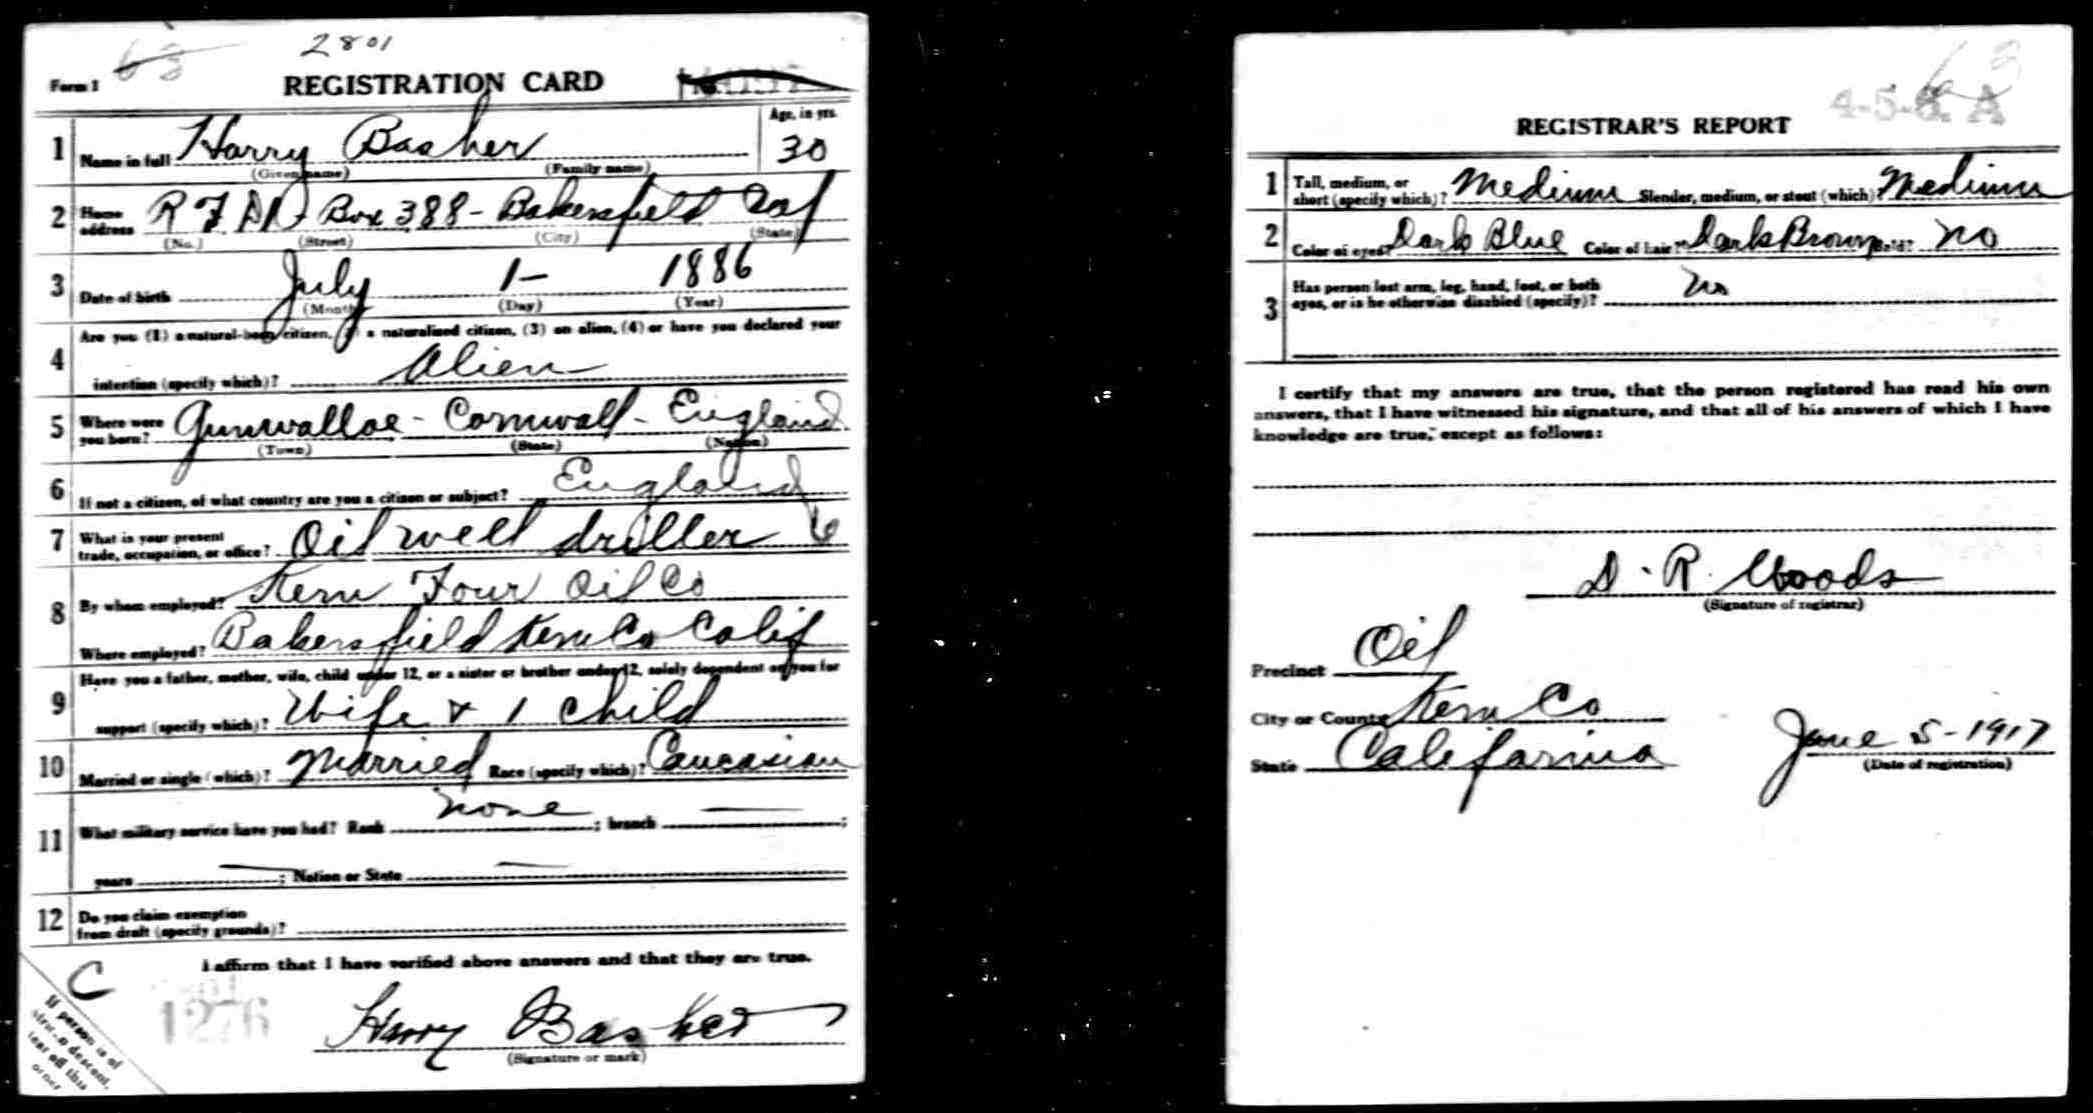 2801
63
Form 1 REGISTRATION CARD
1 Name in full Harry Basher Age, in yrs. 30
(Given name) (Family name)
2 Home address R F D 1 Box 388 - Bakersfield Cal
(No.) (Street) (City) (State)
3 Date of birth July 1 - 1886
(Month) (Day) (Year)
4 Are you (1) a natural-born citizen, (2) a naturalized citizen, (3) an alien, (4) or have you declared your
intention (specify which)? Alien
5 Where were you born? Gunwalloe - Cornwall - England
(Town) (State) (Nation)
6 If not a citizen, of what country are you a citizen or subject? England
7 What is your present trade, occupation, or office? Oil well driller 6
8 By whom employed? Kern Four Oil Co
Where employed? Bakersfield Kern Co Calif
9 Have you a father, mother, wife, child under 12, or a sister or brother under 12, solely dependent on you for
support (specify which)? Wife & 1 child
10 Married or single (which)? Married Race (specify which)? Caucasian
11 What military service have you had? Rank none ; branch — ;
years — ; Nation or State —
12 Do you claim exemption
from draft (specify grounds)?
I affirm that I have verified above answers and that they are true.
C
1276
Harry Basher
(Signature or mark)
If person is of
African descent,
tear off this
corner
63
4-5-6. A
REGISTRAR'S REPORT
1 Tall, medium, or short (specify which)? Medium Slender, medium, or stout (which)? Medium
2 Color of eyes? Dark Blue Color of hair? Dark Brown Bald? No
3 Has person lost arm, leg, hand, foot, or both
eyes, or is he otherwise disabled (specify)? No
I certify that my answers are true, that the person registered has read his own
answers, that I have witnessed his signature, and that all of his answers of which I have
knowledge are true, except as follows:
D. R. Woods
(Signature of registrar)
Precinct Oil
City or County Kern Co
State California June 5 - 1917
(Date of registration)